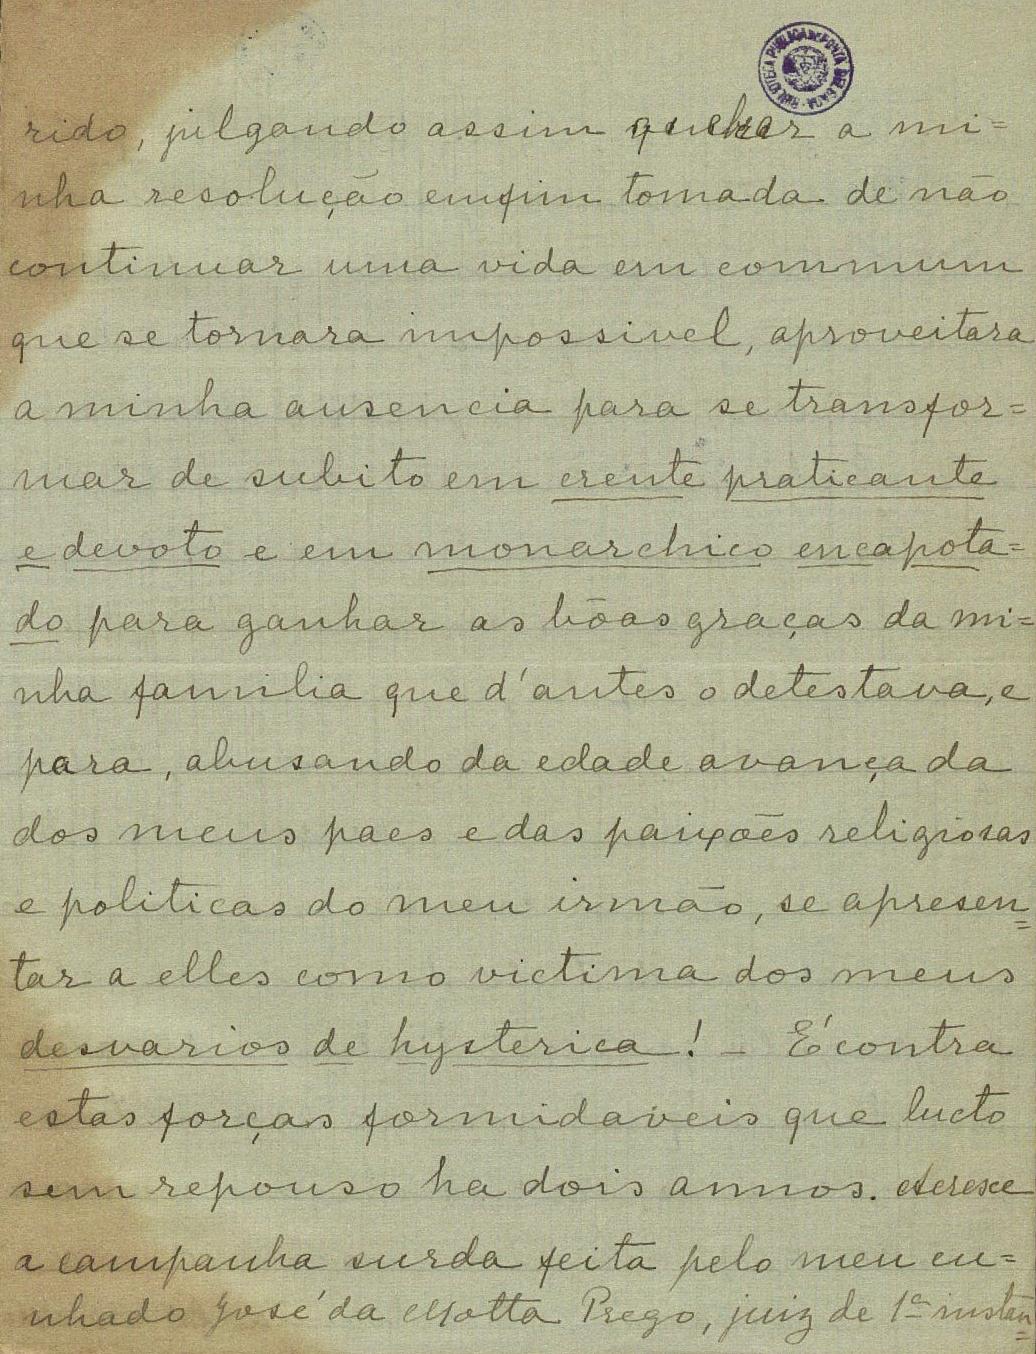 BIBLIOTECA PUBLICA DE PONTA DELGADA
rido, julgando assim quebrar a mi=
nha resolução emfim tomada de não
continuar uma vida em commum
que se tornara impossivel, aproveitara
a minha ausencia para se transfor=
mar de subito em crente praticante
e devoto e em monarchico encapota=
do para ganhar as bôas graças da mi=
nha familia que d'antes o detestava, e
para, abusando da edade avançada
dos meus paes e das paixões religiosas
e politicas do meu irmão, se apresen=
tar a elles como victima dos meus
desvarios de hysterica! – É contra
estas forças formidaveis que lucto
sem repouso ha dois annos. Accresce
a campanha surda feita pelo meu cu=
nhado José da Motta Prego, juiz de 1ª instan=